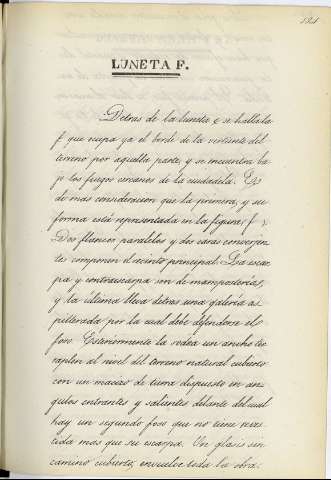 121
LUNETA F.
Detras de la luneta e se hallala
f que ocupa ya el borde de la vertiente del
terreno por aquella parte, y se encuentra ba
jo los fuegos cercanos de la ciudadela. Es
de mas consideracion que la primera, y su
forma está representada en la figura ( ).
Dos flancos paralelos y dos caras converjen
tes componen el recinto principal. La escar
pa y contraescarpa son de mamposterías,
y la última lleva detras una galería as
pillerada por la cual debe defenderse el
foso. Esteriormente la rodea un ancho ter
raplen al nivel del terreno natural cubierto
con un macizo de tierra dispuesto en án
gulos entrantes y salientes delante del cual
hay un segundo foso que no tiene reves
tida mas que su escarpa. Un glasis sin
camino cubierto, envuelve toda la obra.